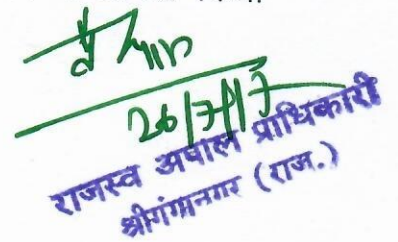 26/7/17
राजस्व अपील प्राधिकारी
श्रीगंगानगर (राज.)